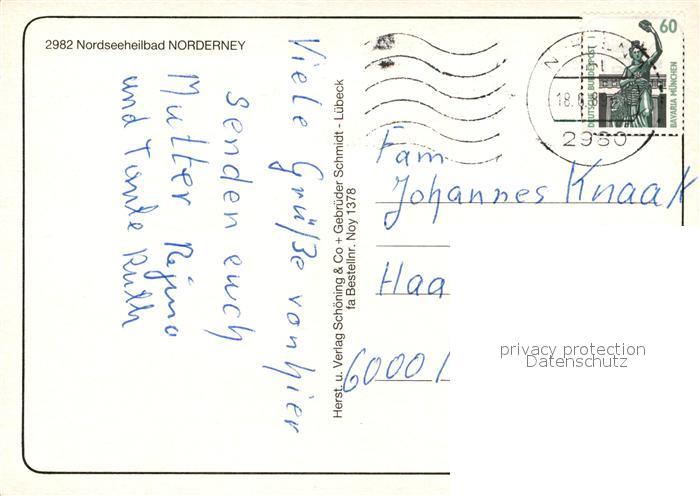 2982 Nordseeheilbad NORDERNEY
Viele Grüße von hier
senden euch
Mutter Regina
und Tante Ruth
Herst. u. Verlag Schöning & Co + Gebrüder Schmidt - Lübeck
fa Bestellnr. Noy 1378
60
DEUTSCHE BUNDESPOST
BAVARIA MÜNCHEN
18.6.88
2980
Fam
Johannes Knaak
Haa
6000
privacy protection
Datenschutz